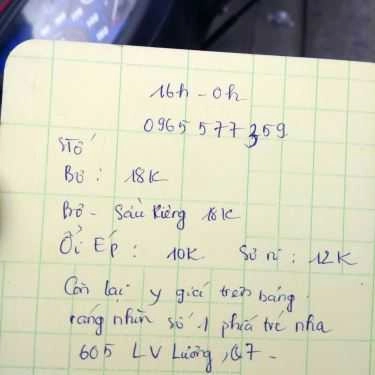 16h - 0h
0965 577 359
Stố
Bơ : 18K
Bơ - Sầu Riêng 18K
Ổi Ép : 10K Sơ ri : 12K
Còn lại y giá trên bảng.
ráng nhìn số 1 phía trc nha
605 LV Lương, Q7 -